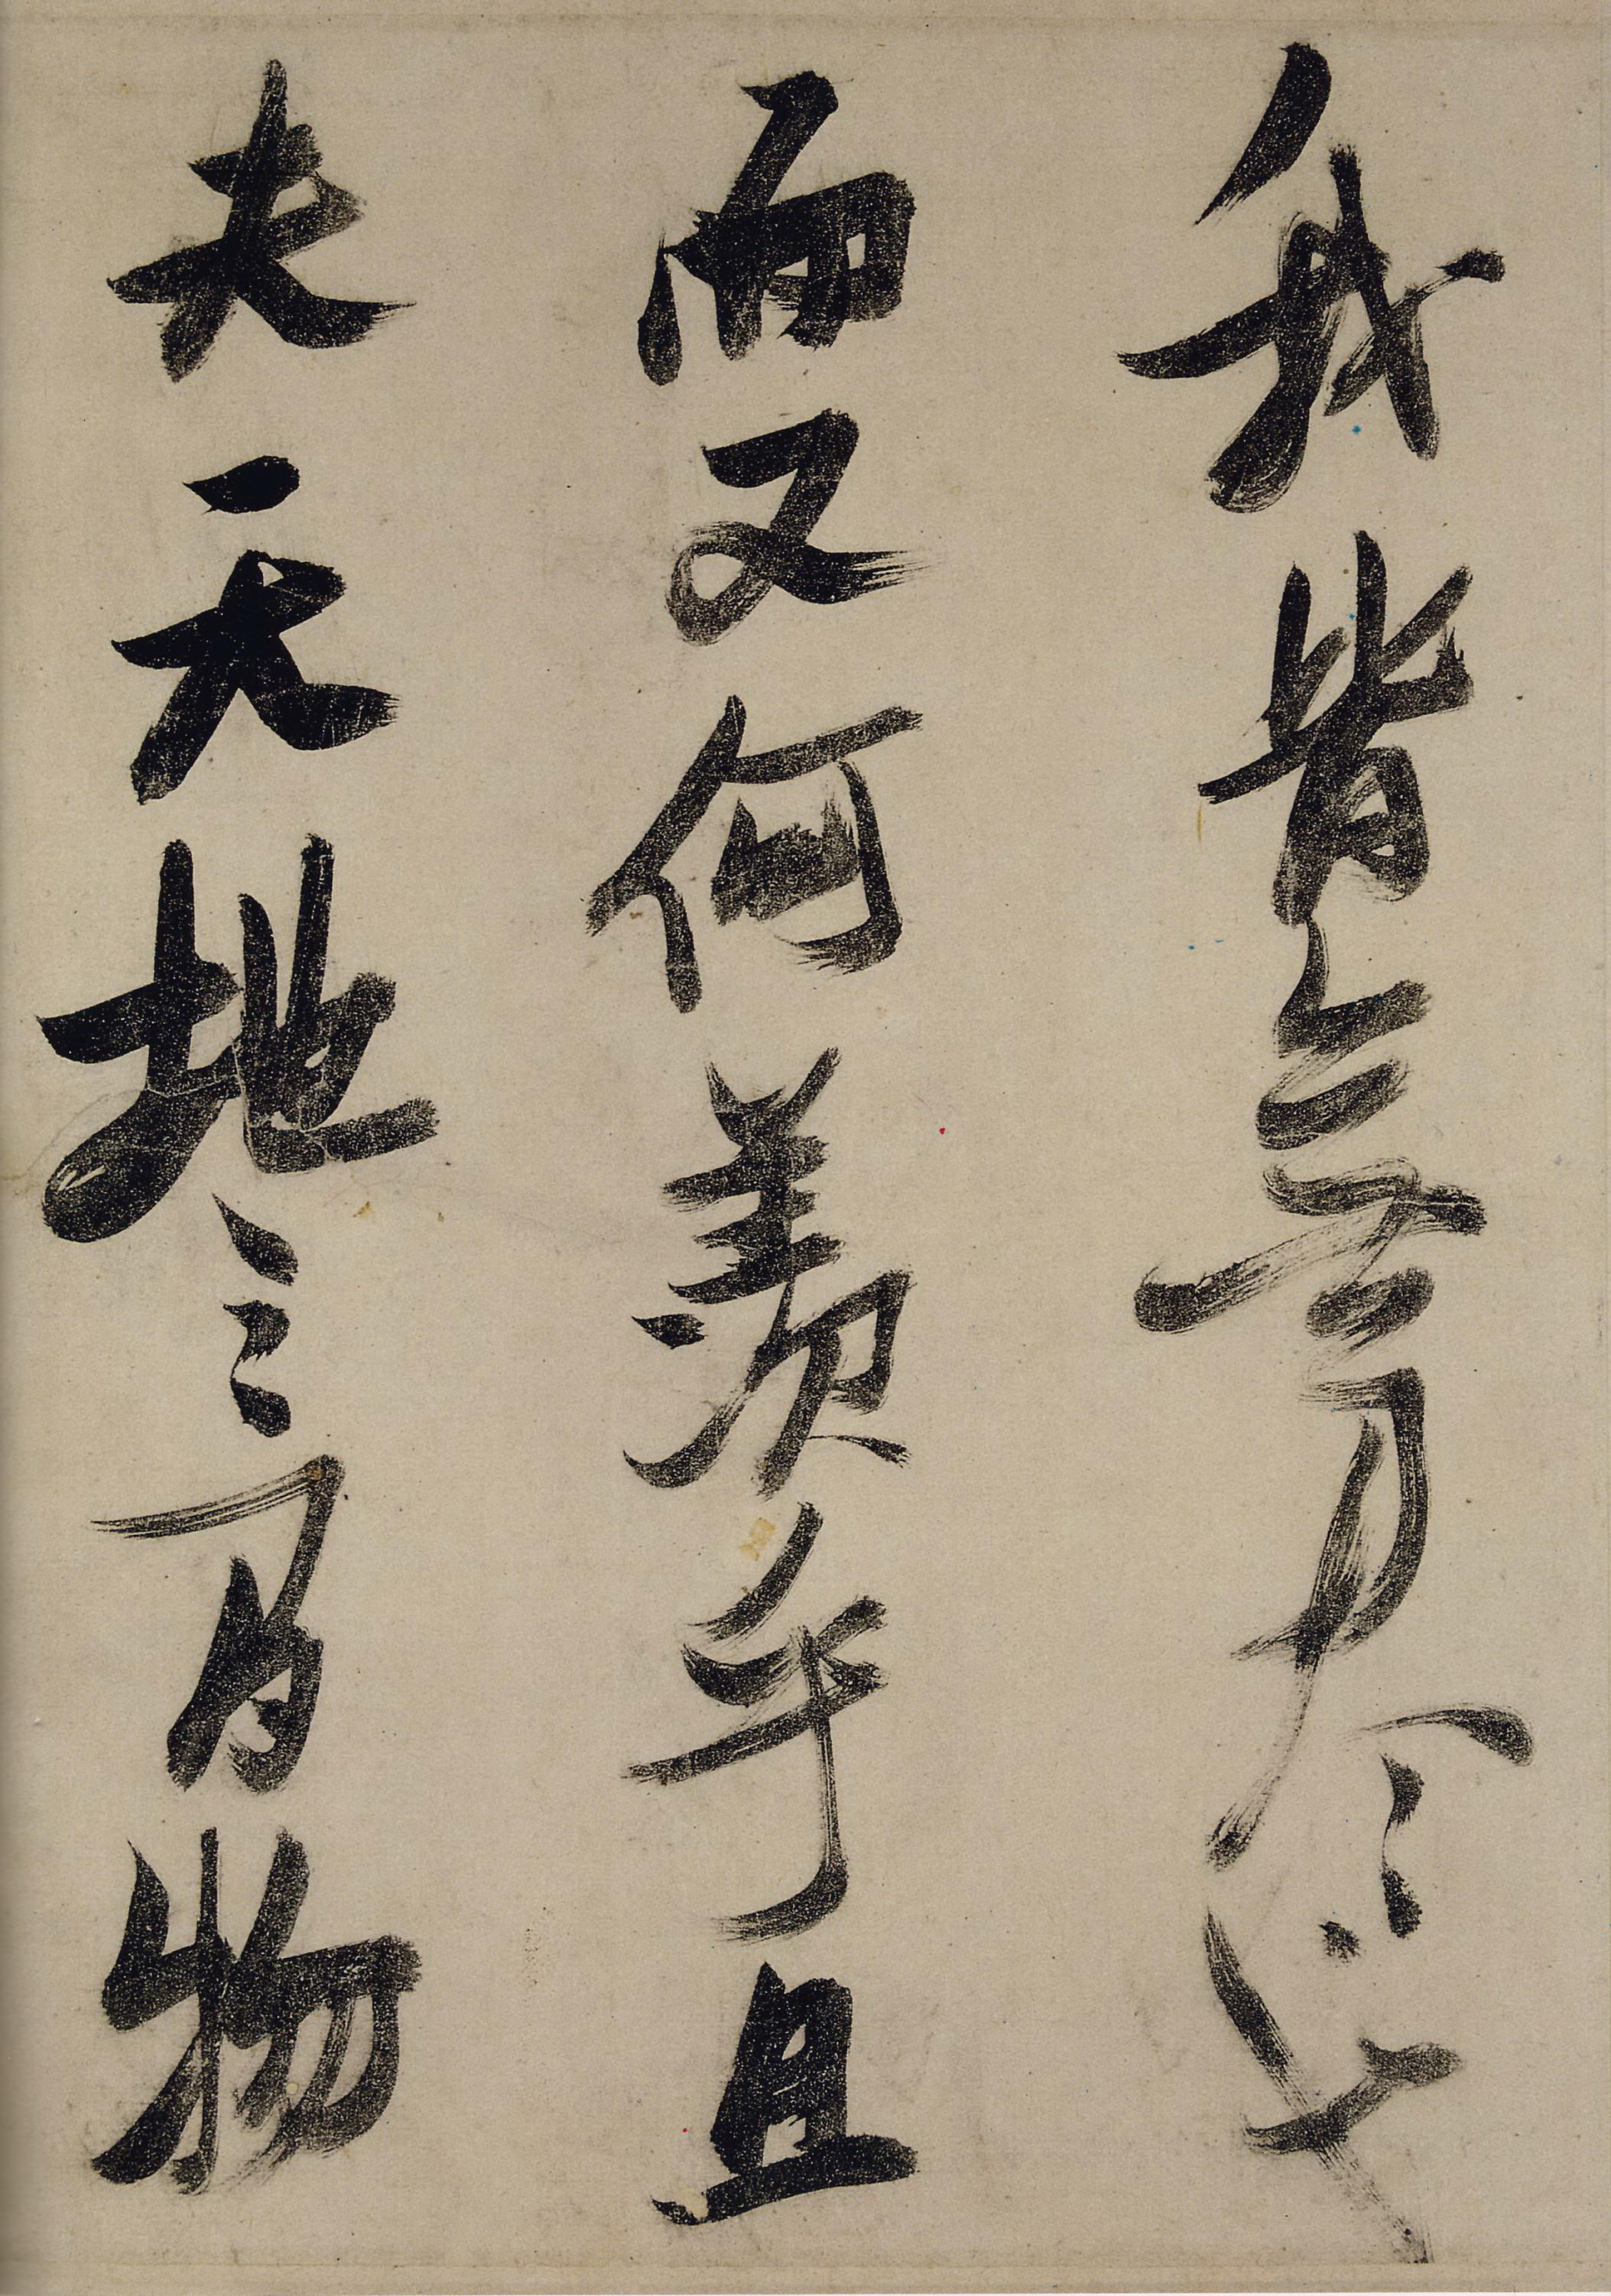 我皆無盡也
而又何羨乎且
夫天地之間物